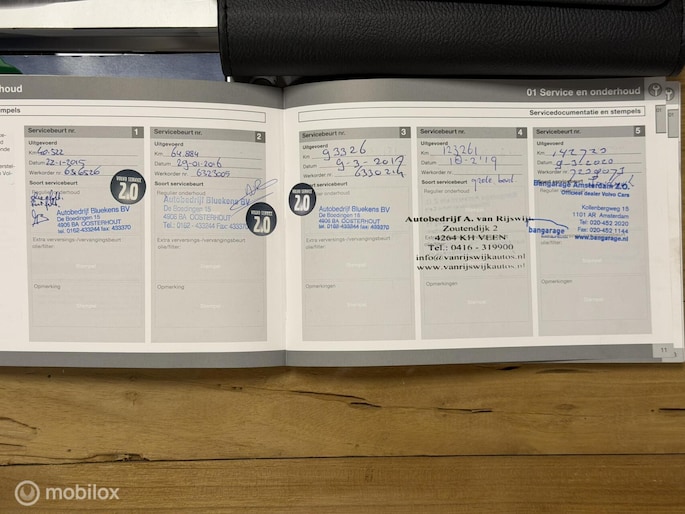 houd
01 Service en onderhoud
mpels
Servicedocumentatie en stempels
Servicebeurt nr. 1
Uitgevoerd
Km 40.522
Datum 22-1-2015
Werkorder nr.
Soort servicebeurt
Regulier onderhoud
VOLVO SERVICE
2.0
Autobedrijf Bluekens BV
De Boedingen 15
4906 BA OOSTERHOUT
tel. 0162-433244 fax: 433370
Extra verversings-/vervangingsbeurt
olie/filter:
Opmerking
Servicebeurt nr. 2
Uitgevoerd
Km 64.884
Datum 29-01-2016
Werkorder nr 6323009
Soort servicebeurt
Regulier onderhoud
Autobedrijf Bluekens BV
De Boedingen 15
4906 BA OOSTERHOUT
Tel.: 0162-433244 Fax: 433370
VOLVO SERVICE
2.0
Extra verversings-/vervangingsbeurt
olie/filter:
Opmerking
Servicebeurt nr. 3
Uitgevoerd
Km 93326
Datum 9-3-2017
Werkorder nr 6330214
Soort servicebeurt
Regulier onderhoud
2.0
Autobedrijf Bluekens BV
De Boedingen 15
4906 BA OOSTERHOUT
tel. 0162-433244 fax: 433370
Extra verversings-/vervangingsbeurt
olie/filter:
Opmerkingen
Servicebeurt nr. 4
Uitgevoerd
Km 123261
Datum 18-2-'19
Werkorder nr.
Soort servicebeurt grote beurt
Regulier onderhoud
Autobedrijf A. van Rijswijk
Zoutendijk 2
4264 KH VEEN
Tel.: 0416 - 319900
info@vanrijswijkautos.nl
www.vanrijswijkautos.nl
Opmerkingen
Servicebeurt nr. 5
Uitgevoerd
Km 142723
Datum 9-3-2020
Werkorder nr
Soort servicebeurt
Bangarage Amsterdam ZO.
Officieel dealer Volvo Cars
Kollenbergweg 15
1101 AR Amsterdam
Tel: 020-452 2020
Fax: 020-452 1144
bangarage
www.bangarage.nl
olie/filter:
Opmerkingen
11
mobilox